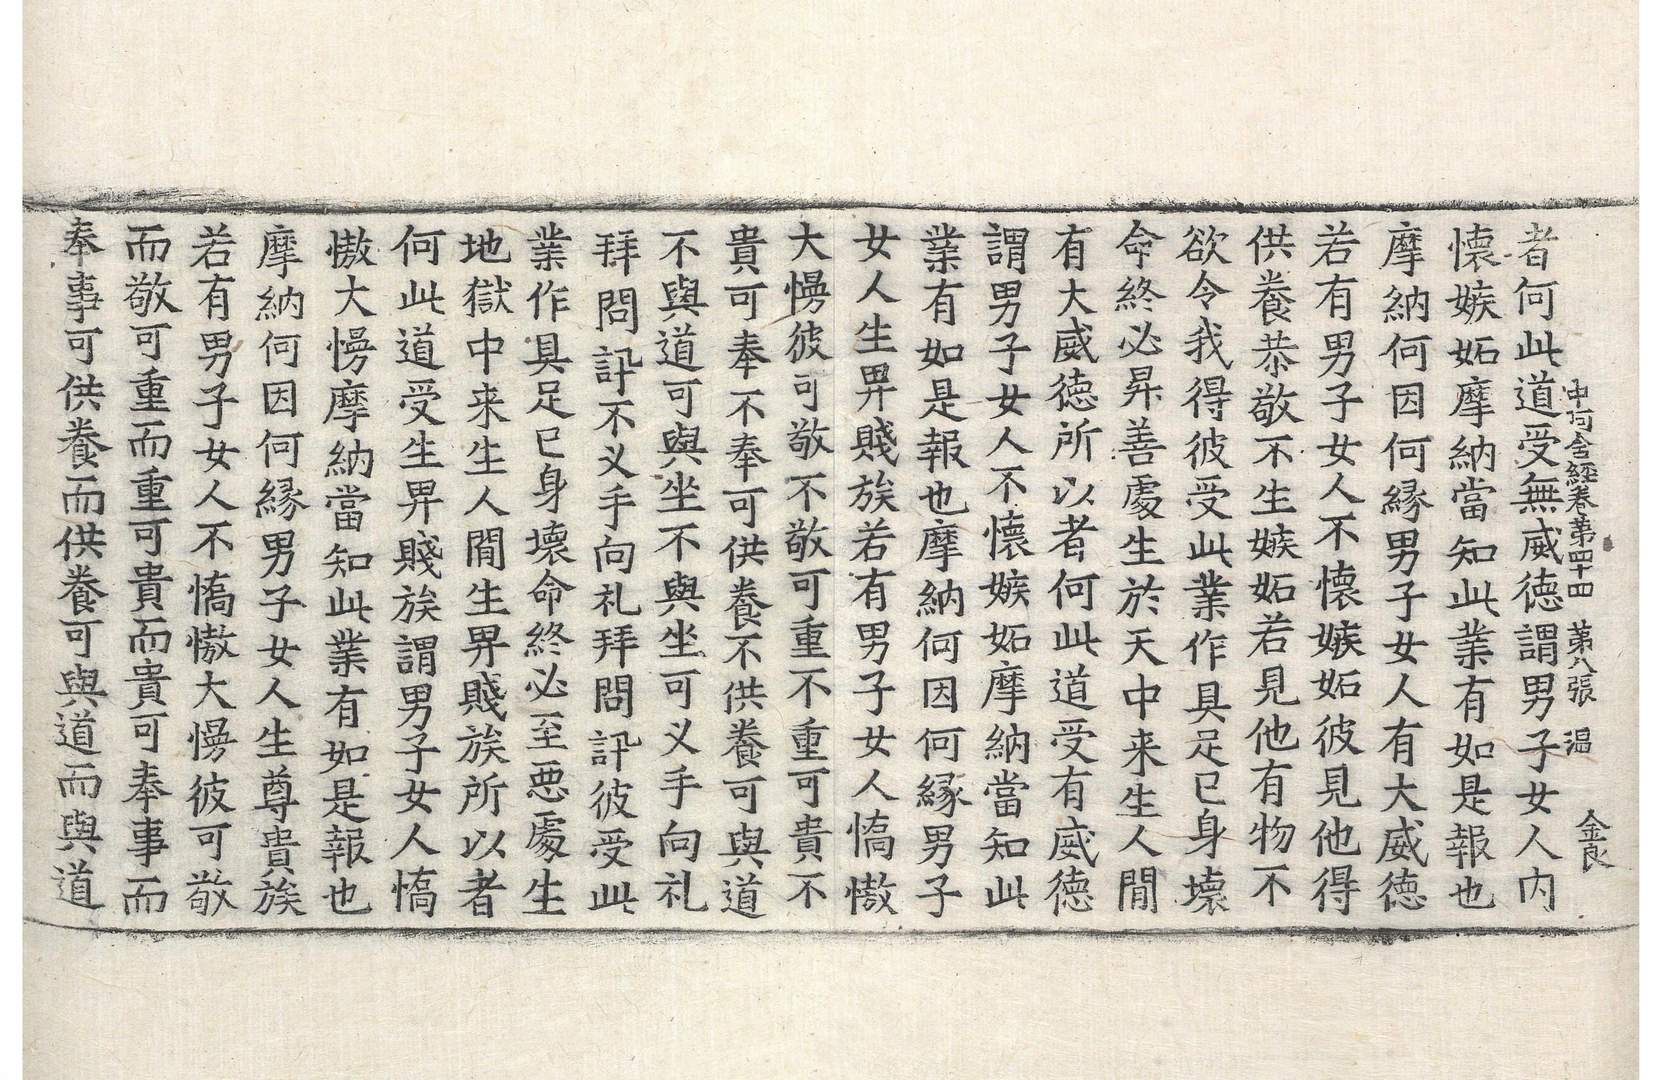 中阿含經卷第四十四 第八張 温 金良
者何此道受無威德謂男子女人内
懷嫉妬摩納當知此業有如是報也
摩納何因何縁男子女人有大威德
若有男子女人不懷嫉妬彼見他得
供養恭敬不生嫉妬若見他有物不
欲令我得彼受此業作具足已身壞
命終必昇善處生於天中来生人間
有大威德所以者何此道受有威德
謂男子女人不懷嫉妬摩納當知此
業有如是報也摩納何因何縁男子
女人生畀賤族若有男子女人憍慠
大慢彼可敬不敬可重不重可貴不
貴可奉不奉可供養不供養可與道
不與道可與坐不與坐可叉手向礼
拜問訊不叉手向礼拜問訊彼受此
業作具足已身壞命終必至悪處生
地獄中来生人間生畀賤族所以者
何此道受生畀賤族謂男子女人憍
慠大慢摩納當知此業有如是報也
摩納何因何縁男子女人生尊貴族
若有男子女人不憍慠大慢彼可敬
而敬可重而重可貴而貴可奉事而
奉事可供養而供養可與道而與道